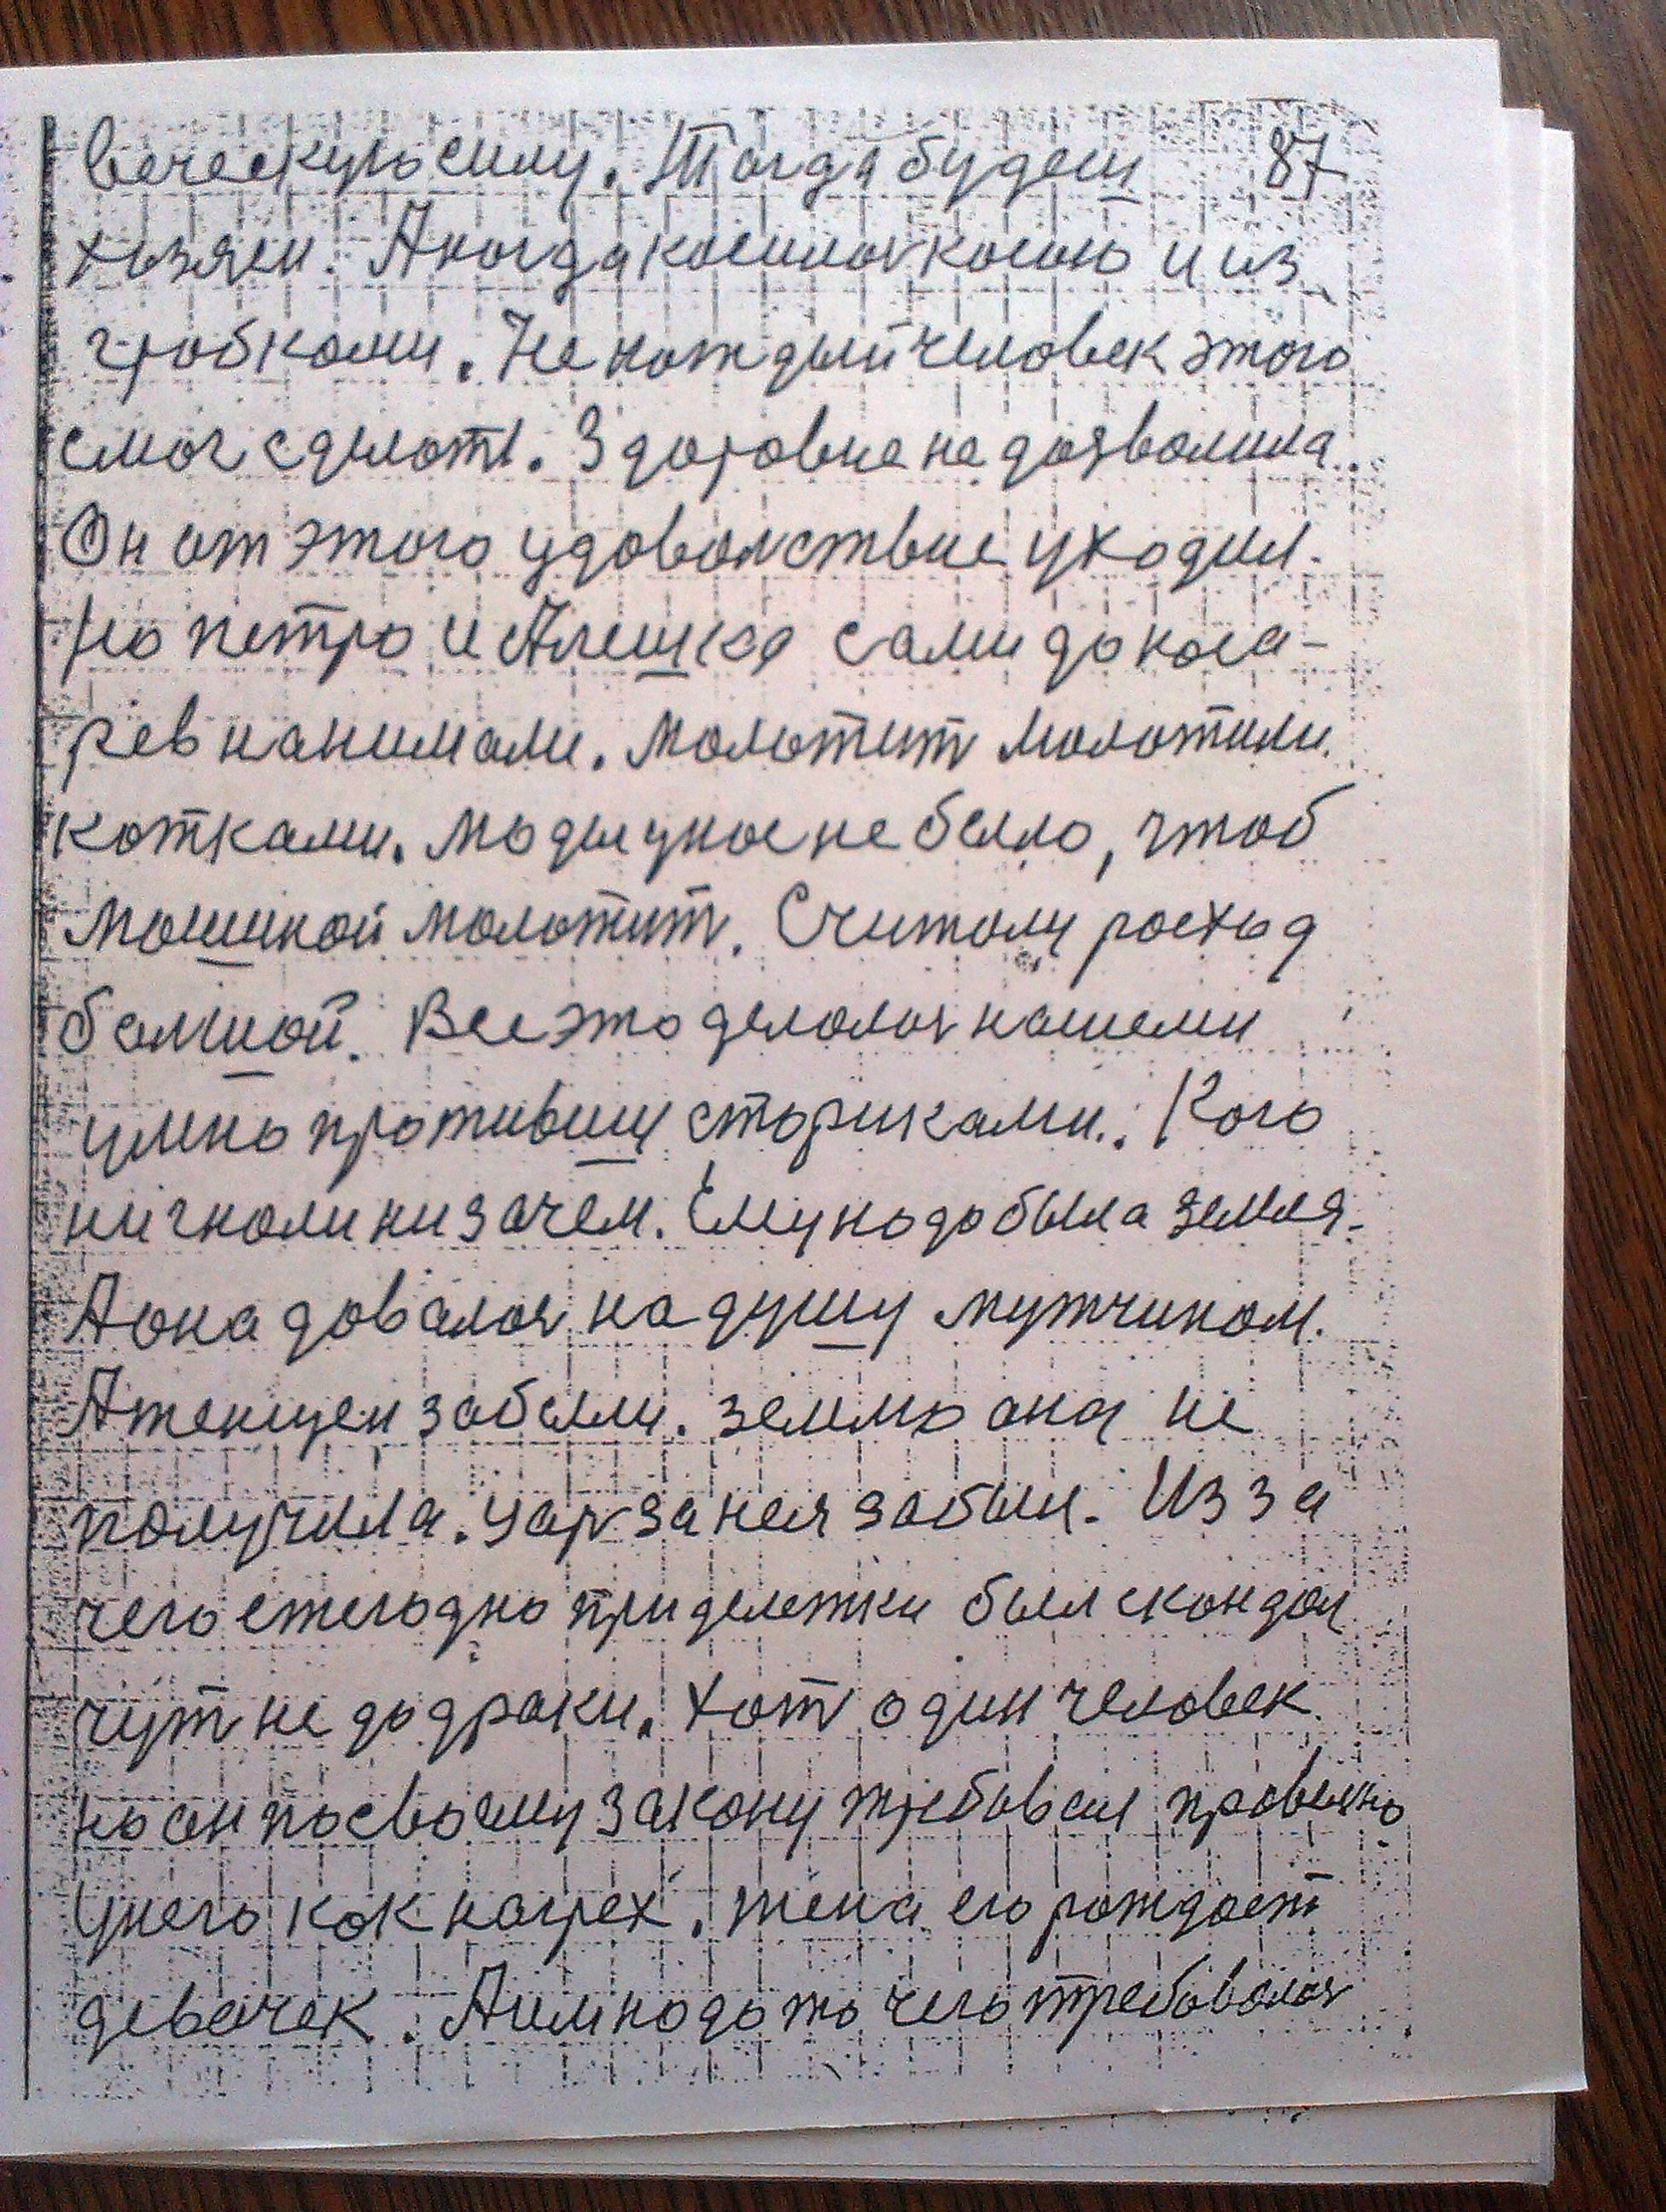 веческую силу. Тогда будеш 87
хозяен. А когда косилос косою и из
гробками. Не каждый человек этого
смог сделоть. Здоровие не дозволила
Он от этого удоволствие уходил.
Но петро и Алешка сами до коса-
рев нанимали. Молотит молотили
котками. Моды у нас не было, чтоб
Машиной молотит. Считали расход
болшой. Все это делолос нашеми
умно противши стариками. Кого
ни гнали ни зачем. Ему надо была земля.
А она довалос на душу мутчином.
А тенщен забыли. землю она не
получила. Цар за нея забыл. Из за
чего етегодно при делетки был скандал
чут не до драки. Хот один человек
но он по своему закону требовал правелно
У него как на грех. тена его рождает
девачек. А им надо то чего требовалос